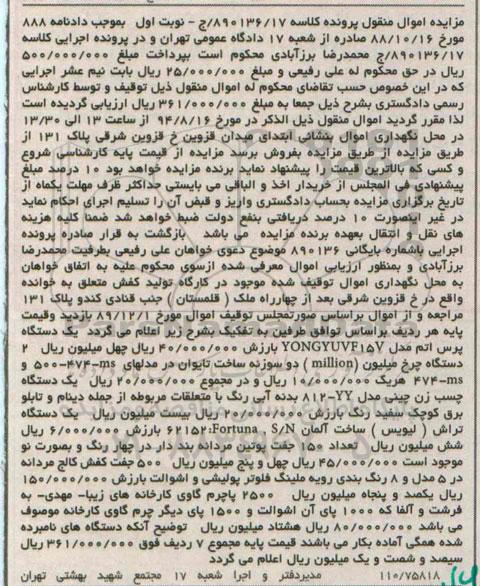 مزایده اموال منقول پرونده کلاسه ۸۹۰۱۳۶/۱۷/ج - نوبت اول بموجب دادنامه ۸۸۸
مورخ ۸۸/۱۰/۱۶ صادره از شعبه ۱۷ دادگاه عمومی تهران و در پرونده اجرایی کلاسه
۸۹۰۱۳۶/۱۷/ج محمدرضا برزآبادی محکوم است بپرداخت مبلغ ۵۰۰/۰۰۰/۰۰۰
ریال در حق محکوم له علی رفیعی و مبلغ ۲۵/۰۰۰/۰۰۰ ریال بابت نیم عشر اجرایی
که در این خصوص حسب تقاضای محکوم له اموال منقول ذیل توقیف و توسط کارشناس
رسمی دادگستری بشرح ذیل جمعا به مبلغ ۳۶۱/۰۰۰/۰۰۰ ریال ارزیابی گردیده است
لذا مقرر گردید اموال منقول ذیل الذکر در مورخ ۹۴/۸/۱۶ از ساعت ۱۳ الی ۱۳/۳۰
در محل نگهداری اموال بنشانی ابتدای میدان قزوین خ قزوین شرقی پلاک ۱۳۱ از
طریق مزایده از طریق مزایده بفروش برسد مزایده از قیمت پایه کارشناسی شروع
و کسی که بالاترین قیمت را پیشنهاد نماید برنده مزایده خواهد بود ۱۰ درصد مبلغ
پیشنهادی فی المجلس از خریدار اخذ و الباقی می بایستی حداکثر ظرف مهلت یکماه از
تاریخ برگزاری مزایده بحساب دادگستری واریز و قبض آن را تسلیم اجرای احکام نماید
در غیر اینصورت ۱۰ درصد دریافتی بنفع دولت ضبط خواهد شد ضمنا کلیه هزینه
های نقل و انتقال بعهده برنده مزایده می باشد بازگشت به قرار صادره پرونده
اجرایی باشماره بایگانی ۸۹۰۱۳۶ موضوع دعوی خواهان علی رفیعی بطرفیت محمدرضا
برزآبادی و بمنظور ارزیابی اموال معرفی شده ازسوی محکوم علیه به اتفاق خواهان
به محل نگهداری اموال توقیف شده موجود در کارگاه تولید کفش متعلق به خوانده
واقع در خ قزوین شرقی بعد از چهارراه ملک ( قلمستان ) جنب قنادی کندو پلاک ۱۳۱
مراجعه و از اموال براساس صورتمجلس توقیف اموال مورخ ۸۹/۱۲/۱ بازدید وقیمت
پایه هر ردیف براساس توافق طرفین به تفکیک بشرح زیر اعلام می گردد یک دستگاه
پرس اتم مدل YONGYUVF۱۵V بارزش ۴۰/۰۰۰/۰۰۰ ریال چهل میلیون ریال ۲
دستگاه چرخ میلیون (million ) دو سوزنه ساخت تایوان در مدلهای ۴۷۴-ms-۵۰۰ و
۴۷۴-ms هریک ۱۰/۰۰۰/۰۰۰ ریال و در مجموع ۲۰/۰۰۰/۰۰۰ ریال یک دستگاه
چسب زن چینی مدل ۸۱۲-YY بدنه آبی رنگ با متعلقات مربوطه از جمله دینام و تابلو
برق کوچک سفید رنگ بارزش ۲۰/۰۰۰/۰۰۰ ریال بیست میلیون ریال یک دستگاه
تراش ( لیویس ) ساخت آلمان Fortuna S/N:۶۲۱۵۲ بارزش ۶/۰۰۰/۰۰۰ ریال
شش میلیون ریال تعداد ۱۵۰ جفت پوتین مردانه بند دار در چهار رنگ و بصورت نو
موجود است ۴۵/۰۰۰/۰۰۰ ریال چهل و پنج میلیون ریال ۵۰۰ جفت کفش کالج مردانه
در ۵ مدل و ۸ رنگ بندی رویه ملینگ فلوتر پولیشی و اشوالت بارزش ۱۵۰/۰۰۰/۰۰۰
ریال یکصد و پنجاه میلیون ریال ۲۵۰۰ پاچرم گاوی کارخانه های زیبا- مهدی- به
فرشت و آلفا که ۱۰۰۰ پای آن اشوالت و ۱۵۰۰ پای دیگر چرم گاوی کارخانه موصوف
می باشد ۸۰/۰۰۰/۰۰۰ ریال هشتاد میلیون ریال توضیح آنکه دستگاه های نامبرده
شده همگی آماده بکار می باشند قیمت پایه مجموع ۷ ردیف فوق ۳۶۱/۰۰۰/۰۰۰ ریال
سیصد و شصت و یک میلیون ریال اعلام می گردد
۱۱۰/۷۵۸۱۸ مدیردفتر و اجرا شعبه ۱۷ مجتمع شهید بهشتی تهران